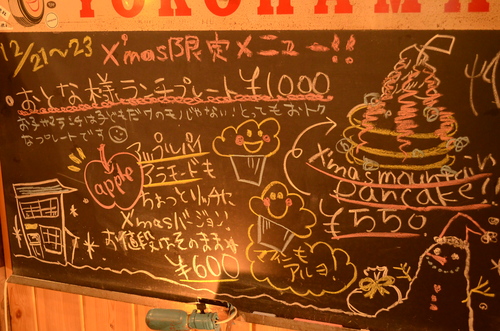 YOKOHAMA
12/21〜23
X'mas限定メニュー!!
おとな様ランチプレート ¥1000
お子やさまは子どもだけのものじゃない、とってもおトク
なプレートです
apple
プルパイ
アラモードも
ちょっとリッチに
X'masバージョン!
お値段はそのまま
¥600
Xmas mountain
Pancake!!
¥550.
マフィンも
アルヨ!